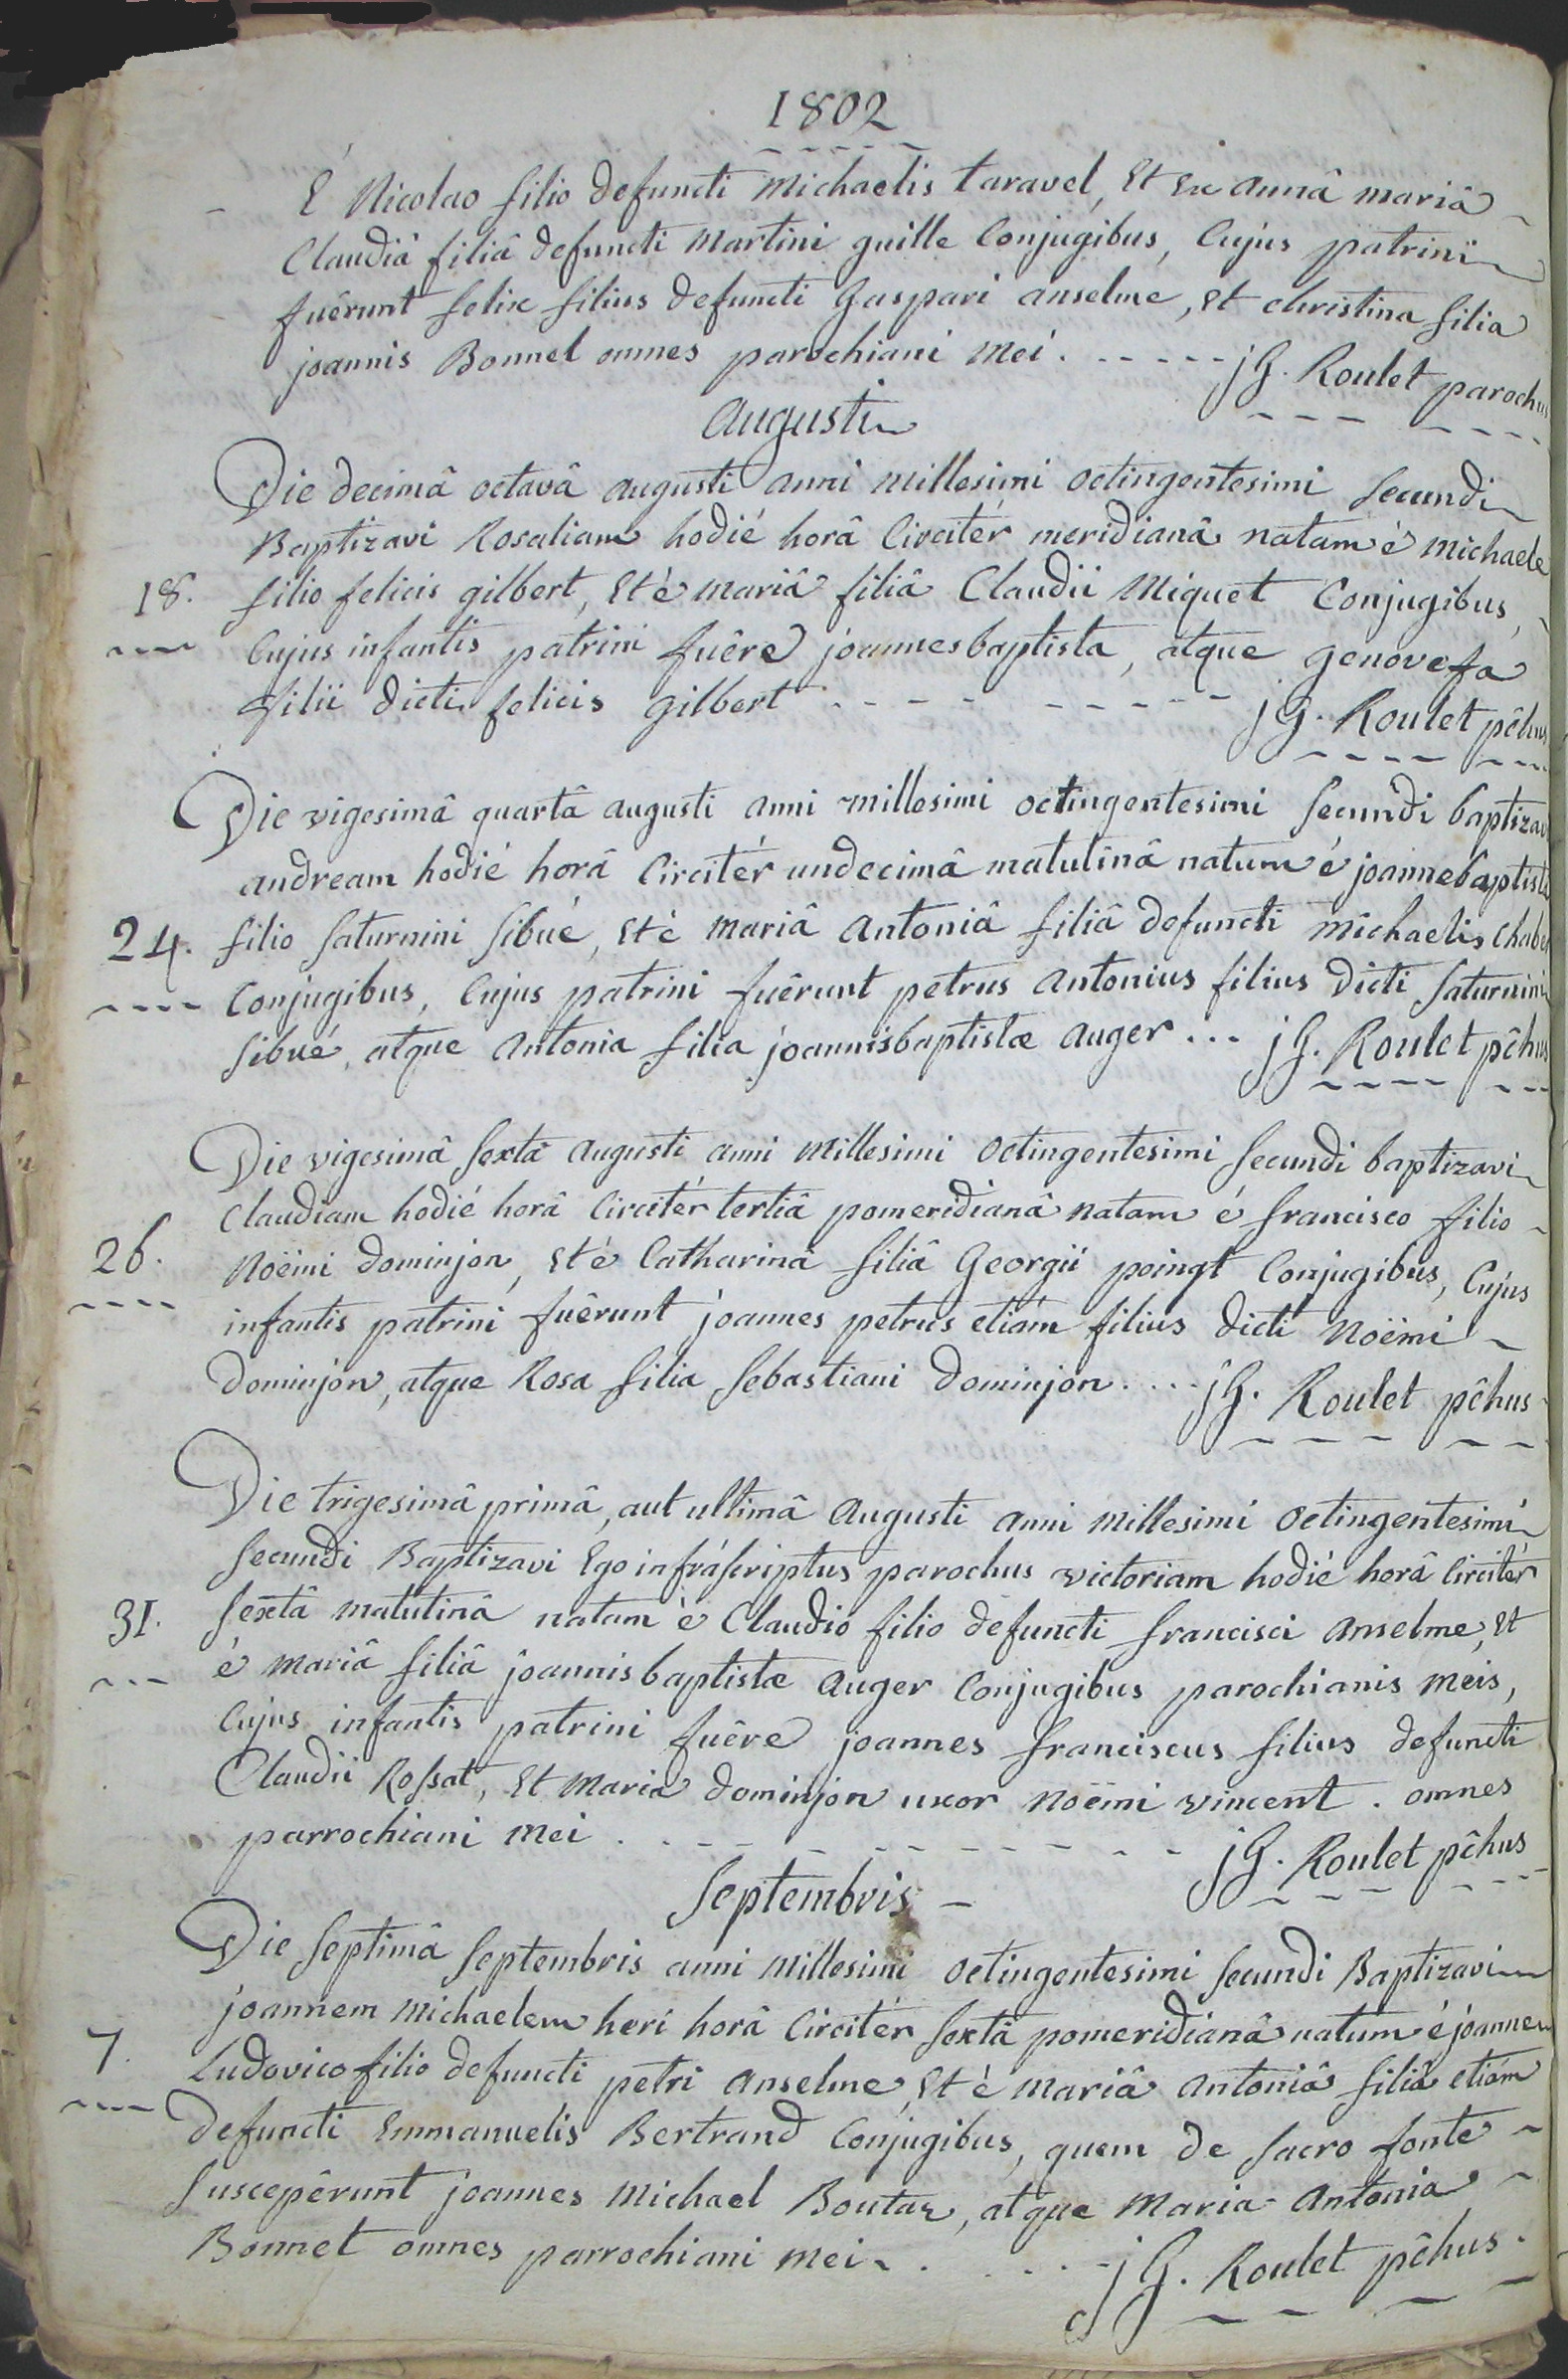 1802
É Nicolao filio defuncti Michaelis taravel, Et Ex annâ mariâ
Claudiâ filiâ defuncti Martini guille Conjugibus, Cujus patrini
fuêrunt felix filius defuncti Gaspari anselme, Et christina filia
joannis Bonnel omnes parochiani Mei. - - - - - jG. Roulet parochus
Augusti
Die decimâ octavâ augusti anni Millesimi octingentesimi Secundi
Baptizavi Rosaliam hodié horâ Circitér meridianâ natam é Michaele
18. filio felicis gilbert, Et é Mariâ filiâ Claudii Miquet Conjugibus,
Cujus infantis patrini fuêre joannesbaptista, atque genovefa
filii dicti felicis gilbert - - - - - - - - jG. Roulet pêhus
Die vigesimâ quartâ augusti anni millesimi octingentesimi Secundi baptizavi
andream hodié horâ Circitér undecimâ matutinâ natum é joannebaptista
24. filio Saturnini Sibué, Et é Mariâ Antoniâ filiâ defuncti Michaelis
Conjugibus, Cujus patrini fuêrunt petrus Antonius filius dicti Saturnini
Sibué, atque Antonia filia joannisbaptistæ Auger ... jG. Roulet pêhus
Die vigesimâ Sextâ Augusti anni Millesimi octingentesimi Secundi baptizavi
Claudiam hodié horâ Circitér tertiâ pomeridianâ natam é francisco filio
26. Noëmi dominjon, Et é Catharinâ filiâ Georgii poingt Conjugibus, Cujus
infantis patrini fuêrunt joannes petrus etiám filius dicti Noëmi
dominjon, atque Rosa filia Sebastiani dominjon .... jG. Roulet pêhus
Die trigesimâ primâ, aut ultimâ Augusti anni Millesimi octingentesimi
Secundi Baptizavi Ego infráscriptus parochus victoriam hodié horâ Circitér
31. Sextâ matutinâ natam é Claudio filio defuncti francisci Anselme, Et
é Mariâ filiâ joannisbaptistæ Auger Conjugibus parochianis meis,
Cujus infantis patrini fuêre joannes franciscus filius defuncti
Claudii Rossat, Et Maria dominjon uxor Noëmi vincent. omnes
parrochiani Mei . - - - - - - - - - jG. Roulet pêhus
Septembris
Die Septimâ Septembris anni Millesimi octingentesimi Secundi Baptizavi
joannem Michaelem heri horâ Circitér Sextâ pomeridianâ natum é joanne
7. Ludovico filio defuncti petri Anselme, Et é Mariâ Antoniâ filiâ etiám
defuncti Emmanuelis Bertrand Conjugibus, quem de Sacro fonte
Suscepêrunt joannes Michael Boutaz, atque Maria Antonia
Bonnet omnes parrochiani Mei . . . . . jG. Roulet pêhus.